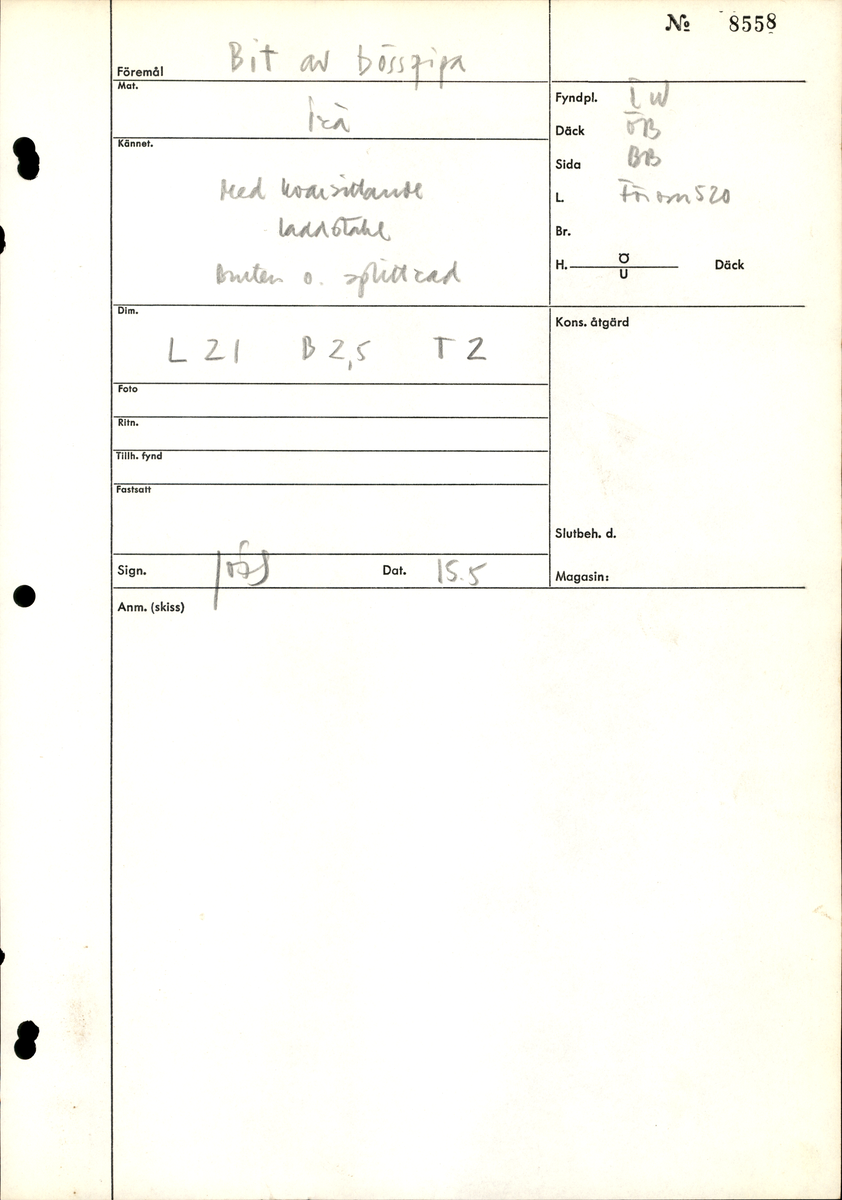 № 8558
Föremål Bit av bösspipa
Mat. Trä
Kännet. Med kvarsittande
laddstake
Bruten o. splittrad
Dim. L 21 B 2,5 T 2
Foto
Ritn.
Tillh. fynd
Fastsatt
Sign. Dat. 15.5
Anm. (skiss)
Fyndpl. I W
Däck ÖB
Sida BB
L. För om 520
Br.
H. Ö Däck
U
Kons. åtgärd
Slutbeh. d.
Magasin: